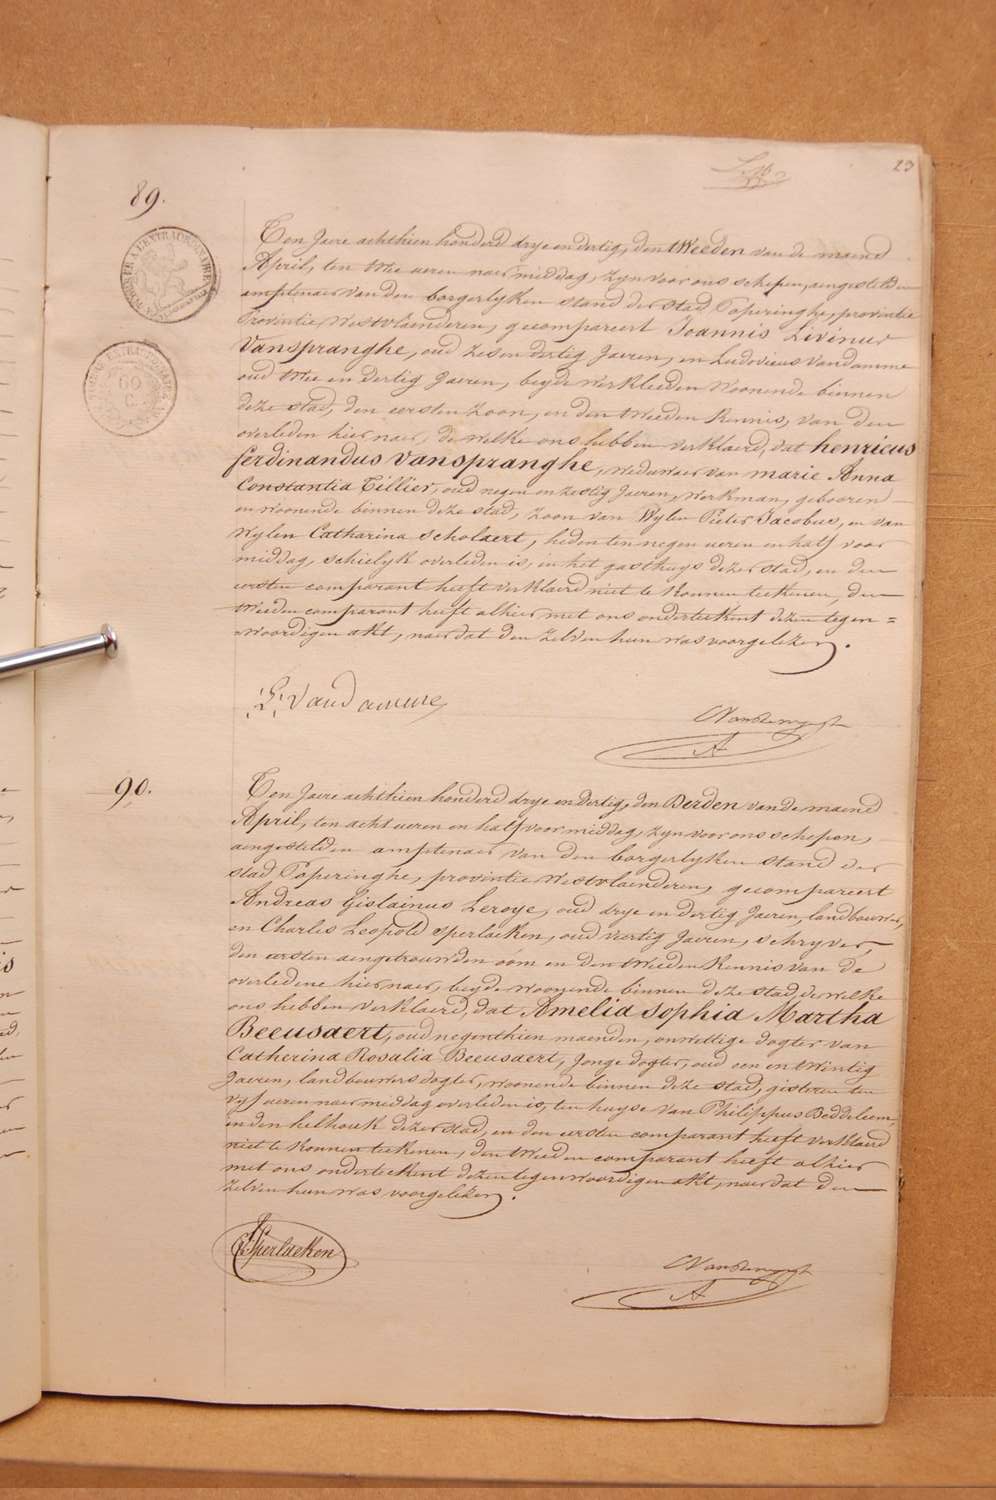 23
89.
Ten Jaere achthien honderd drye en dertig, den tWeeden van de maend
April, ten twee ueren naer middag, zyn voor ons schepen, aengestelden
amptenaer van den borgerlyken stand der stad Poperinghe, provintie
Provintie Westvlaenderen, gecompareert Joannis Livinus
Vanspranghe, oud zes en dertig Jaeren, en Ludovicus Vandamme
oud twee en dertig Jaeren, beyde werklieden woonende binnen
deze stad, den eersten zoon, en den tweeden kennis, van den
overleden hier naer, de welke ons hebben verklaerd, dat henricus
ferdinandus Vanspranghe, weduwaer van marie Anna
Constantia Tillier, oud negen en zestig Jaeren, werkman, gebooren
en woonende binnen deze stad, zoon van Wylen Pieter Jacobus, en van
Wylen Catharina Scholaert, heden ten negen ueren en half voor
middag, schielyk overleden is, in het gasthuys dezer stad, en den
eersten comparant heeft verklaerd niet te konnen teekenen, den
tweeden comparant heeft alhier met ons onderteekent dezen tegen=
=woordigen akt, naer dat den zelven hun was voorgelezen.
L. Vandamme
90.
Ten Jaere achthien honderd drye en dertig, den Derden van de maend
April, ten acht ueren en half voor middag, zyn voor ons schepen,
aengestelden amptenaer van den borgerlyken stand der
stad Poperinghe, provintie Westvlaenderen, gecompareert
Andreas Gislainus Leroye, oud drye en dertig Jaeren, landbouwer,
en Charles Leopold Sperlaeken, oud veertig Jaeren, schryver,
den eersten aengetrouwden oom en den tweeden kennis van de
overledene hier naer, beyde woonende binnen deze stad, de welke
ons hebben verklaerd, dat Amelia Sophia Martha
Beeusaert, oud negenthien maenden, onwettige dogter van
Catherina Rosalia Beeusaert, Jonge dogter, oud een en twintig
Jaeren, landbouwers dogter, woonende binnen deze stad, gisteren ten
vyf ueren naer middag overleden is, ten huyse van Philippus Beddeleem,
in den helhoek dezer stad, en den eersten comparant heeft verklaerd
niet te konnen teekenen, den tweeden comparant heeft alhier
met ons onderteekent dezen tegenwoordigen akt, naer dat den
zelven hun was voorgelezen.
Sperlaeken